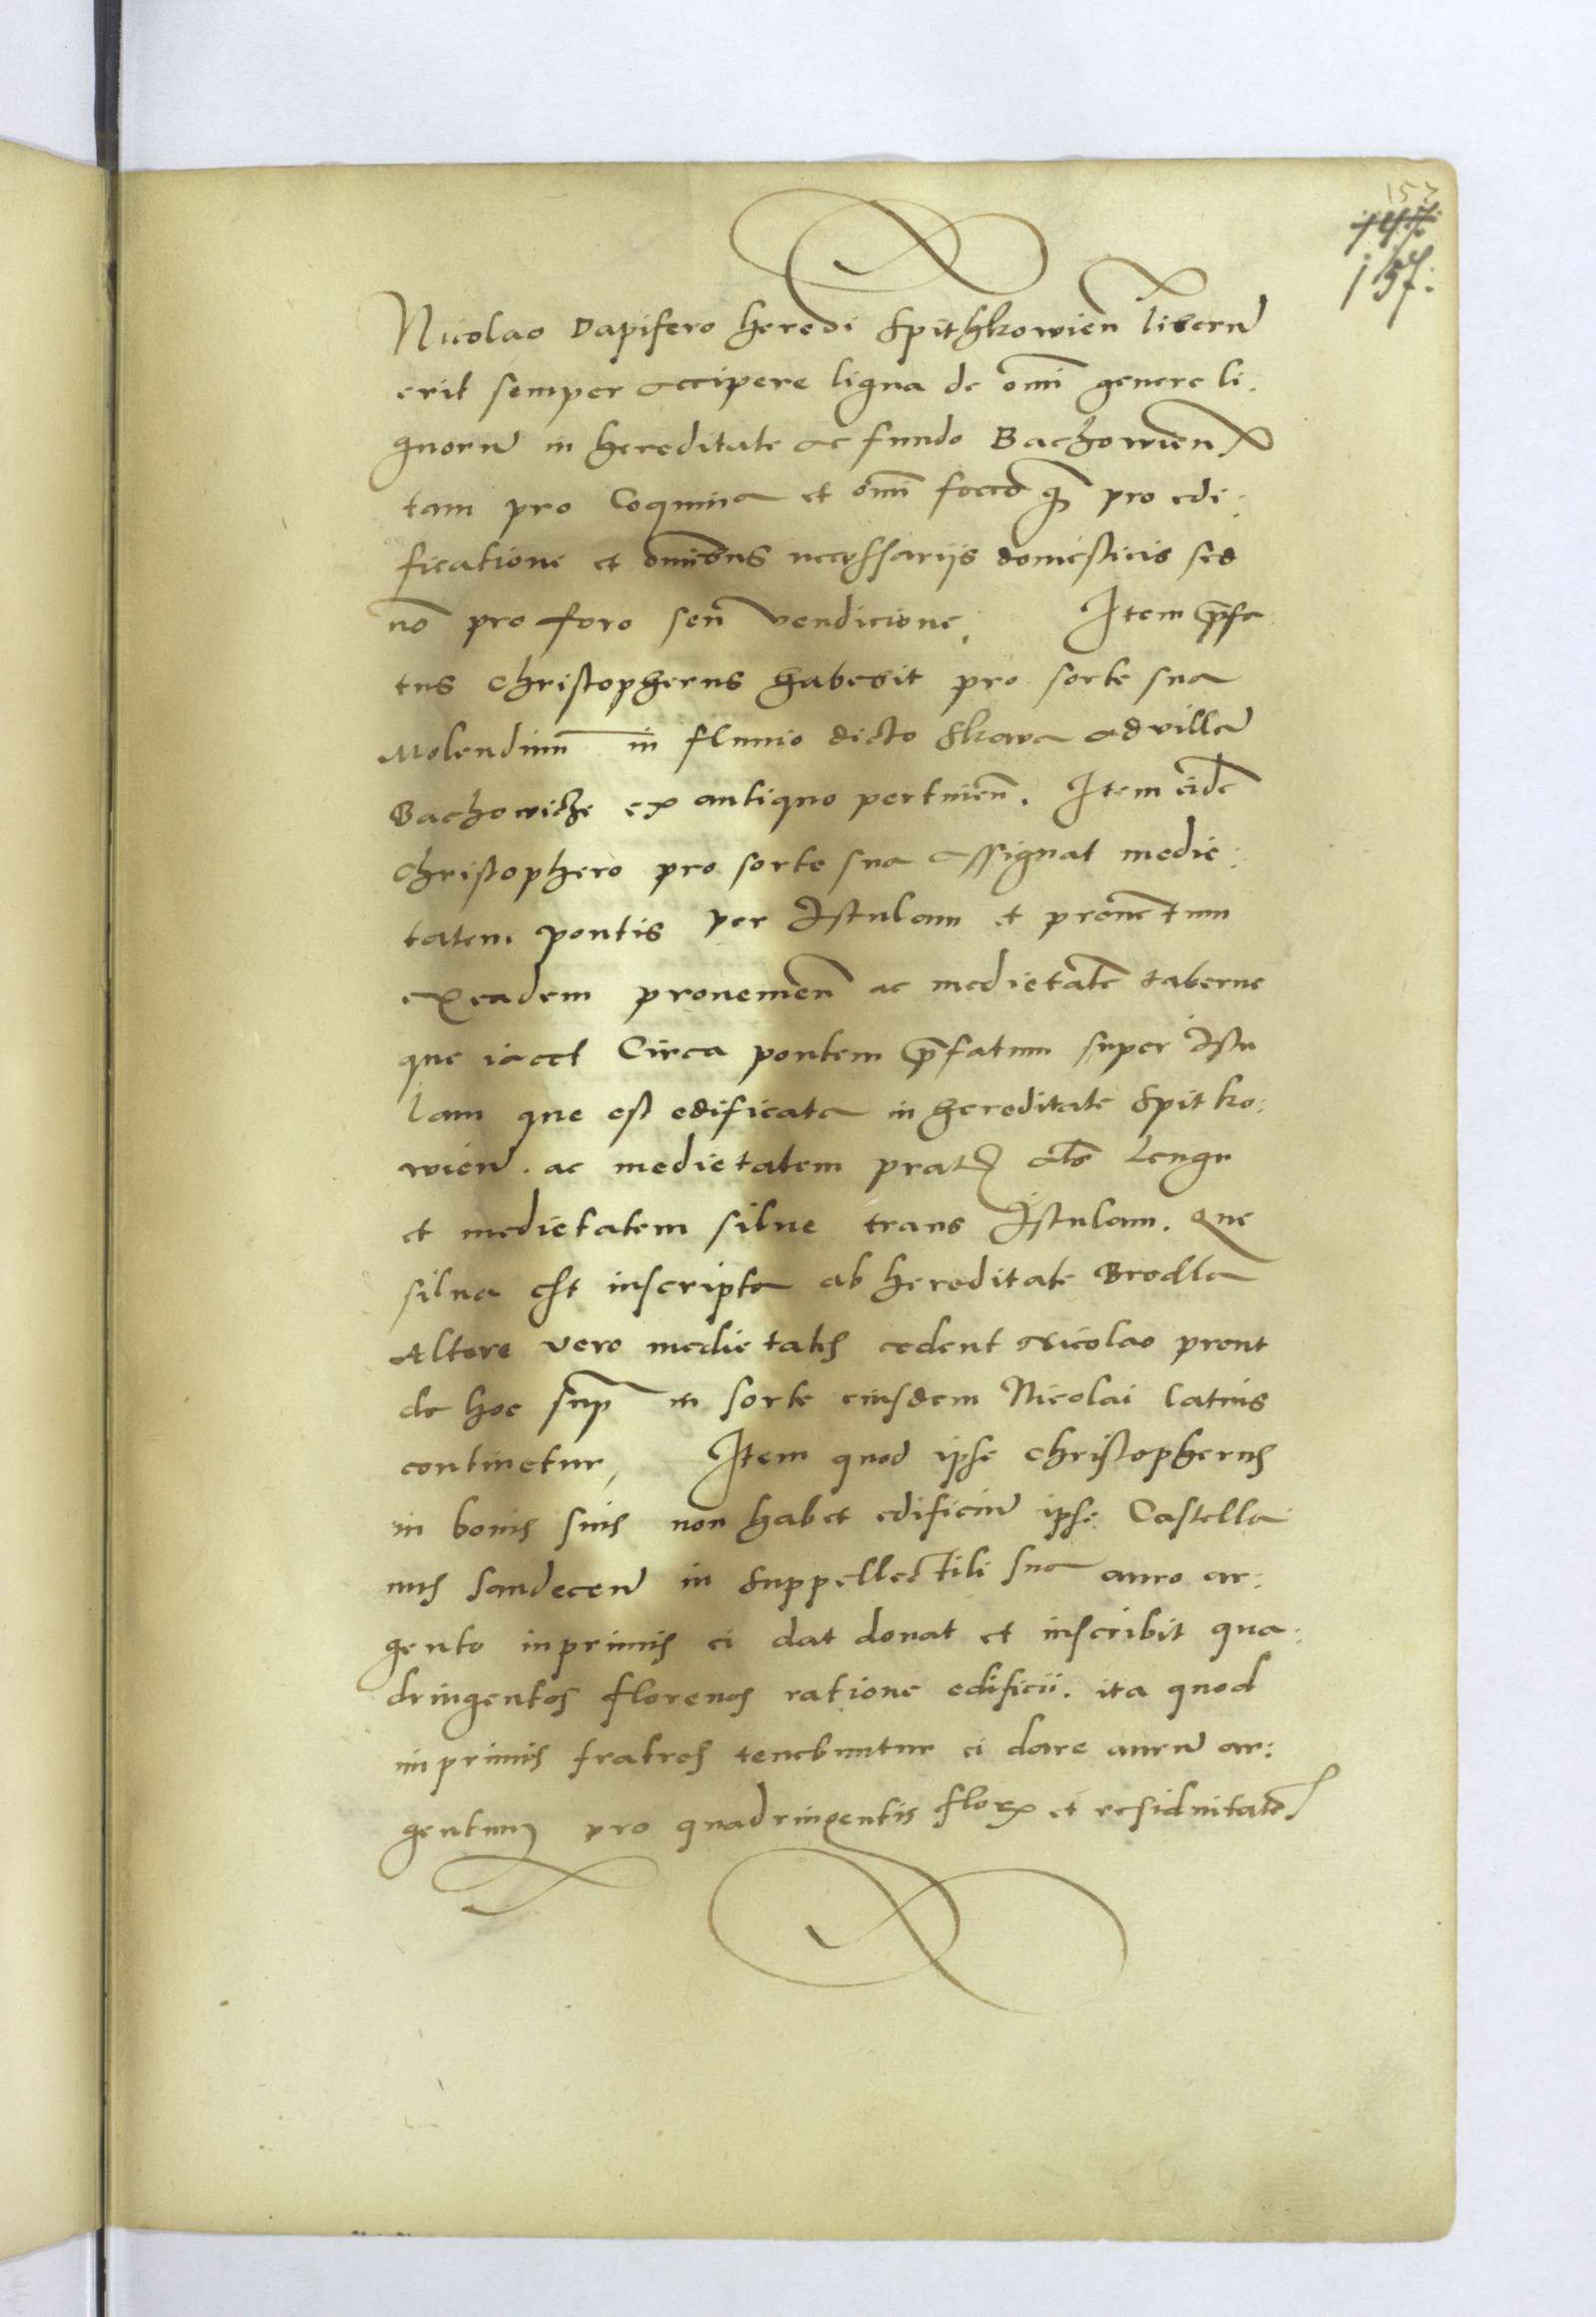 153
157:
Nicolao Dapifero heredi Spithkowien̄ liberū
erit semper accipere ligna de om̄i genere li:
gnorū in hereditate ac fundo Bachowien̄
tam pro Coquina et om̄i foco q̄ pro edi:
ficatione et om̄ibus necessarijs domesticis sed
nō pro foro seu vendicione. Item p̄fa
tus Christopherus habebit pro sorte sua
Molendinū in fluuio dicto Skawa ad villā
Bachowicze ex antiquo pertinen̄. Item eidē
Christophero pro sorte sua assignat medie:
tatem pontis per Istulam et prouentum
ex eadem prouenien̄ ac medietatē taberne
que iacet Circa pontem p̄fatum super Istu
lam que est edificata in hereditate Spitko:
wien̄. ac medietatem prati als Lengu
et medietatem silue trans Istulam. Que
silua est inscripta ab hereditate Brodla
Altere vero medietates cedent Nicolao prout
de hoc sup̄ in sorte eiusdem Nicolai latius
continetur, Item quod ipse Christopherus
in bonis suis non habet edificiū ipse Castella
nus Sandecen̄ in suppellectili sua auro ar:
gento inprimis ei dat donat et inscribit qua:
dringentos florenos ratione edificii. ita quod
inprimis fratres tenebuntur ei dare aurū ar:
gentum pro quadringentis flor et residuitatē